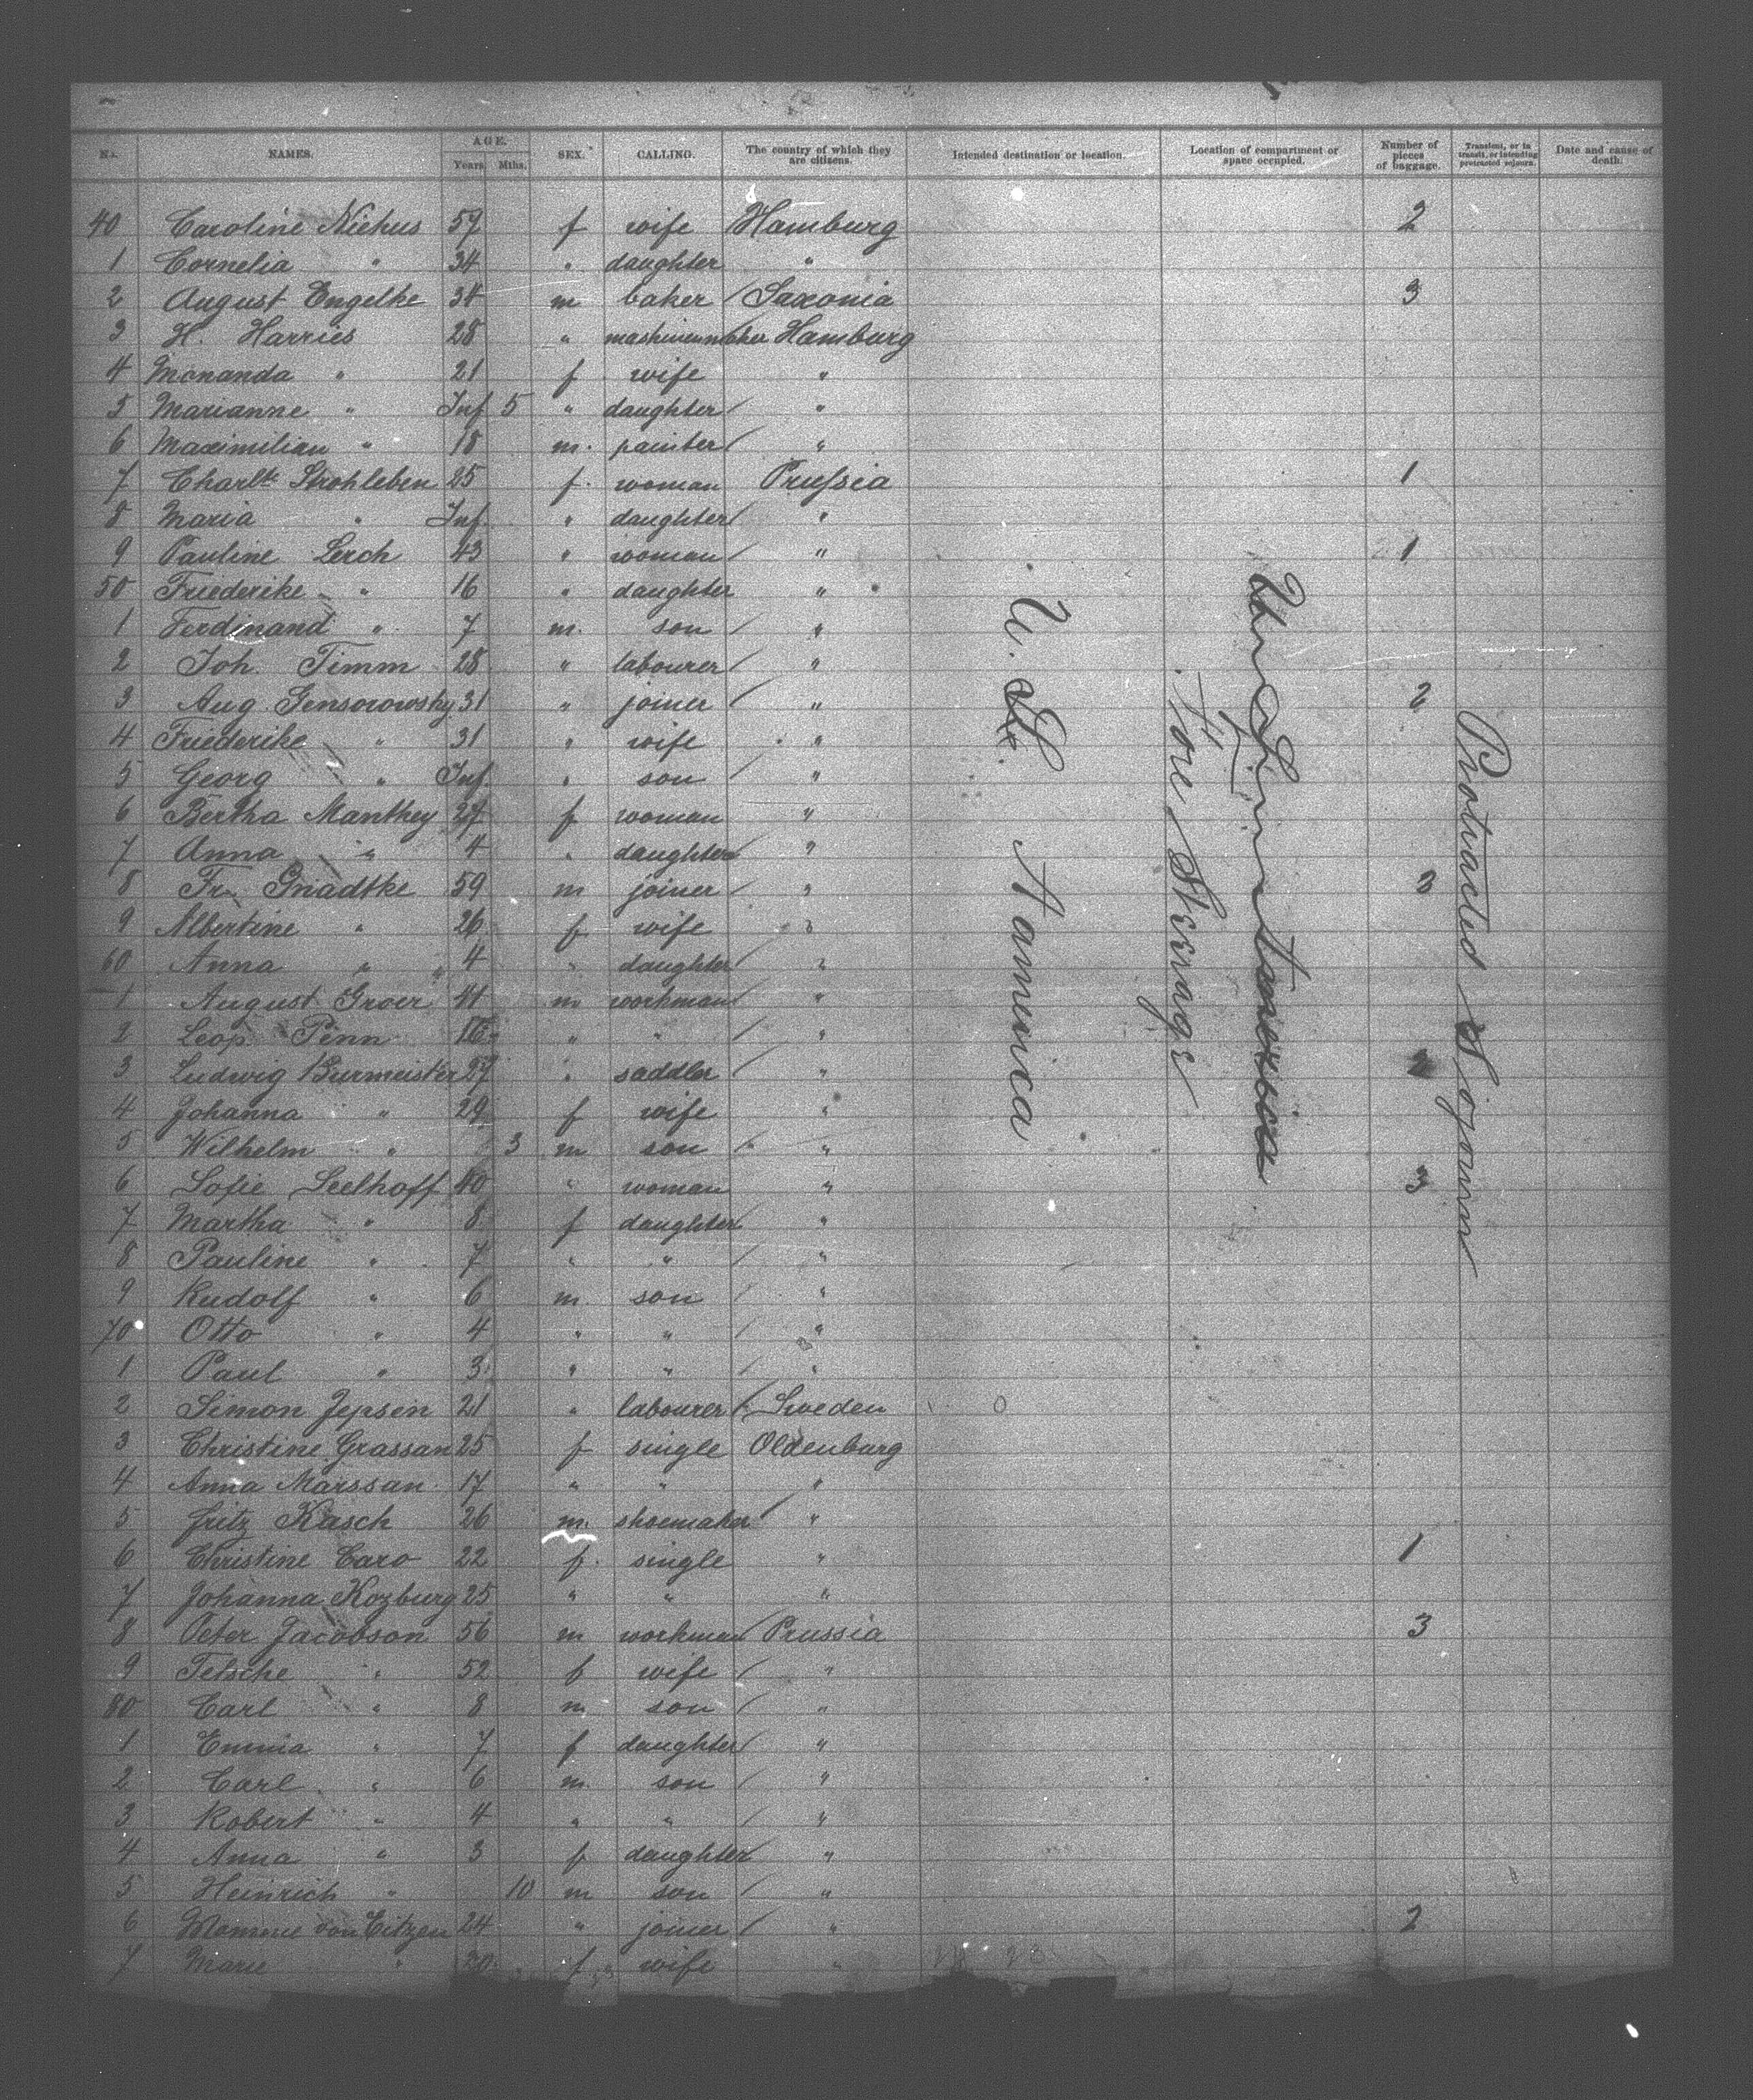 No. NAMES. AGE. Years Mths. SEX. CALLING. The country of which they are citizens. Intended destination or location. Location of compartment or space occupied. Number of pieces of baggage. Transient, or in transit, or intending protracted sojourn. Date and cause of death.
40 Caroline Niehus 59 f wife Hamburg 2
1 Cornelia " 34 " daughter "
2 August Engelke 34 m baker Saxonia 3
3 H. Harries 28 " Hamburg
4 " 21 f wife "
5 Marianne " Inf 5 " daughter "
6 Maximilian " 18 m. painter "
7 Charltte Strohleben 25 f. woman Prussia 1
8 Maria " Inf. " daughter "
9 Pauline Lerch 43 " woman " 1
50 Friederike " 16 " daughter "
1 Ferdinand " 7 m. son "
2 Joh. Timm 28 " labourer "
3 Aug. Gensorowsky 31 " joiner " 2
4 Friederike " 31 " wife "
5 Georg " Inf. " son "
6 Bertha Manthey 27 f woman "
7 Anna " 4 " daughter "
8 Fr. Gniadtke 59 m joiner " 3
9 Albertine " 26 f wife "
60 Anna " 4 " daughter "
1 August Groer 41 m workman "
2 Leop. Penn " " "
3 Ludwig Burmeister 27 " saddler "
4 Johanna " 29 f wife "
5 Wilhelm " 3 m son "
6 Sofie Seelhoff 40 " woman " 3
7 Martha " 8 f daughter "
8 Pauline " 7 " " "
9 Rudolf " 6 m son "
70 Otto " 4 " " "
1 Paul " 3 " " "
2 Simon Jepsen 21 " labourer Sweden
3 Christine Grassan 25 f single Oldenburg
4 Anna Marssan 17 " " "
5 Fritz Kasch 26 m. shoemaker "
6 Christine Caro 22 f. single " 1
7 Johanna Kozburg 25 " " "
8 Peter Jacobson 56 m workman Prussia 3
9 Telsche " 52 f wife "
80 Carl " 8 m son "
1 Emma " 7 f daughter "
2 Carl " 6 m son "
3 Robert " 4 " " "
4 Anna " 3 f daughter "
5 Heinrich " 10 m son "
6 Momme von Eitzen 24 " joiner " 2
7 Marie " 20 f wife "
U. St. America
Fore Steerage
Protracted Sojourn